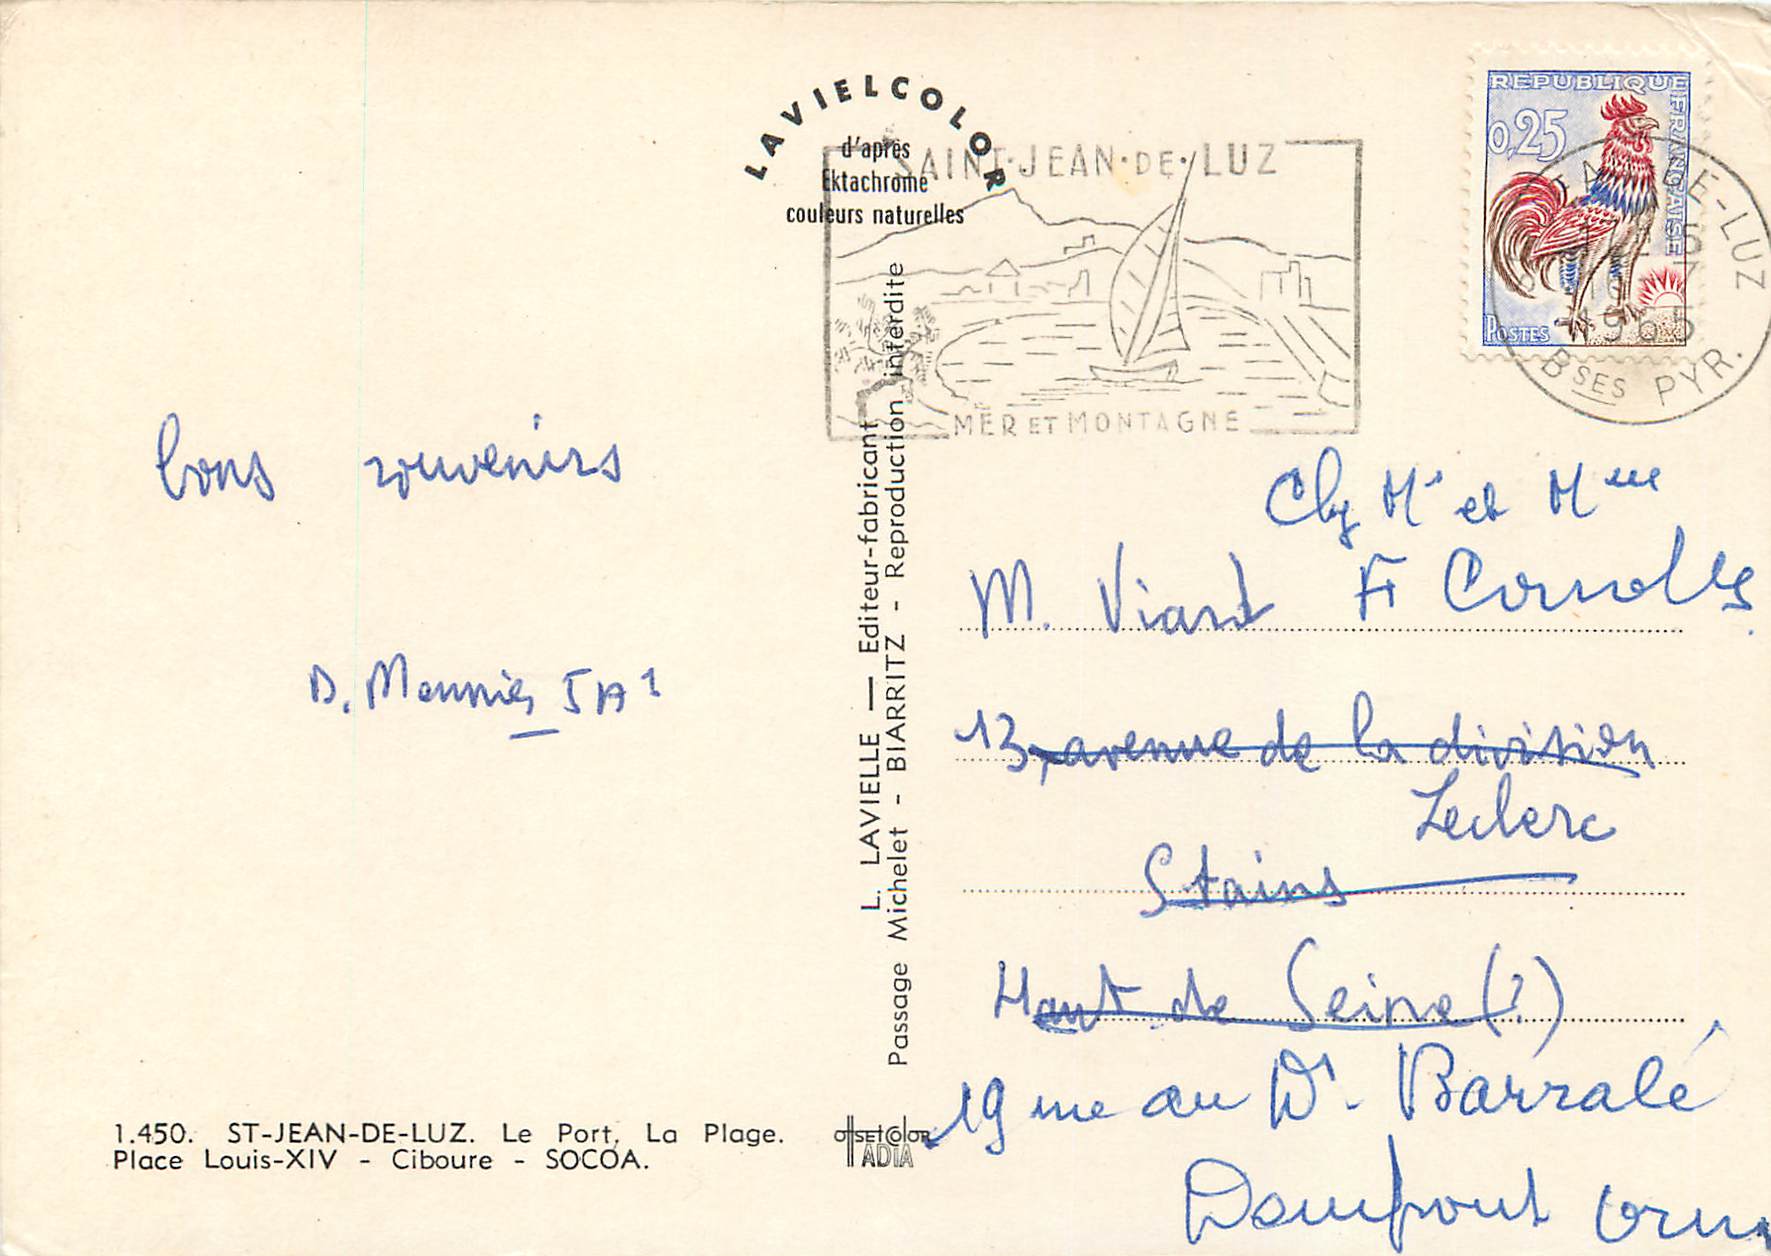 LAVIELCOLOR
d'après
Ektachrome
couleurs naturelles
SAINT·JEAN·DE·LUZ
MER ET MONTAGNE
REPUBLIQUE
FRANÇAISE
0,25
POSTES
E-LUZ
1965
BSES PYR.
bons souvenirs
D. Meunier 5A1
L. LAVIELLE — Editeur-fabricant
Passage Michelet - BIARRITZ - Reproduction interdite
Chz Mr et Mme
M. Viard Fr
13, avenue de la division
Leclerc
Stains
Haut de Seine (?)
19 rue du Dr. Barralé
Domfront Orne
1.450. ST-JEAN-DE-LUZ. Le Port, La Plage.
Place Louis-XIV - Ciboure - SOCOA.
offsetcolor
IADIA